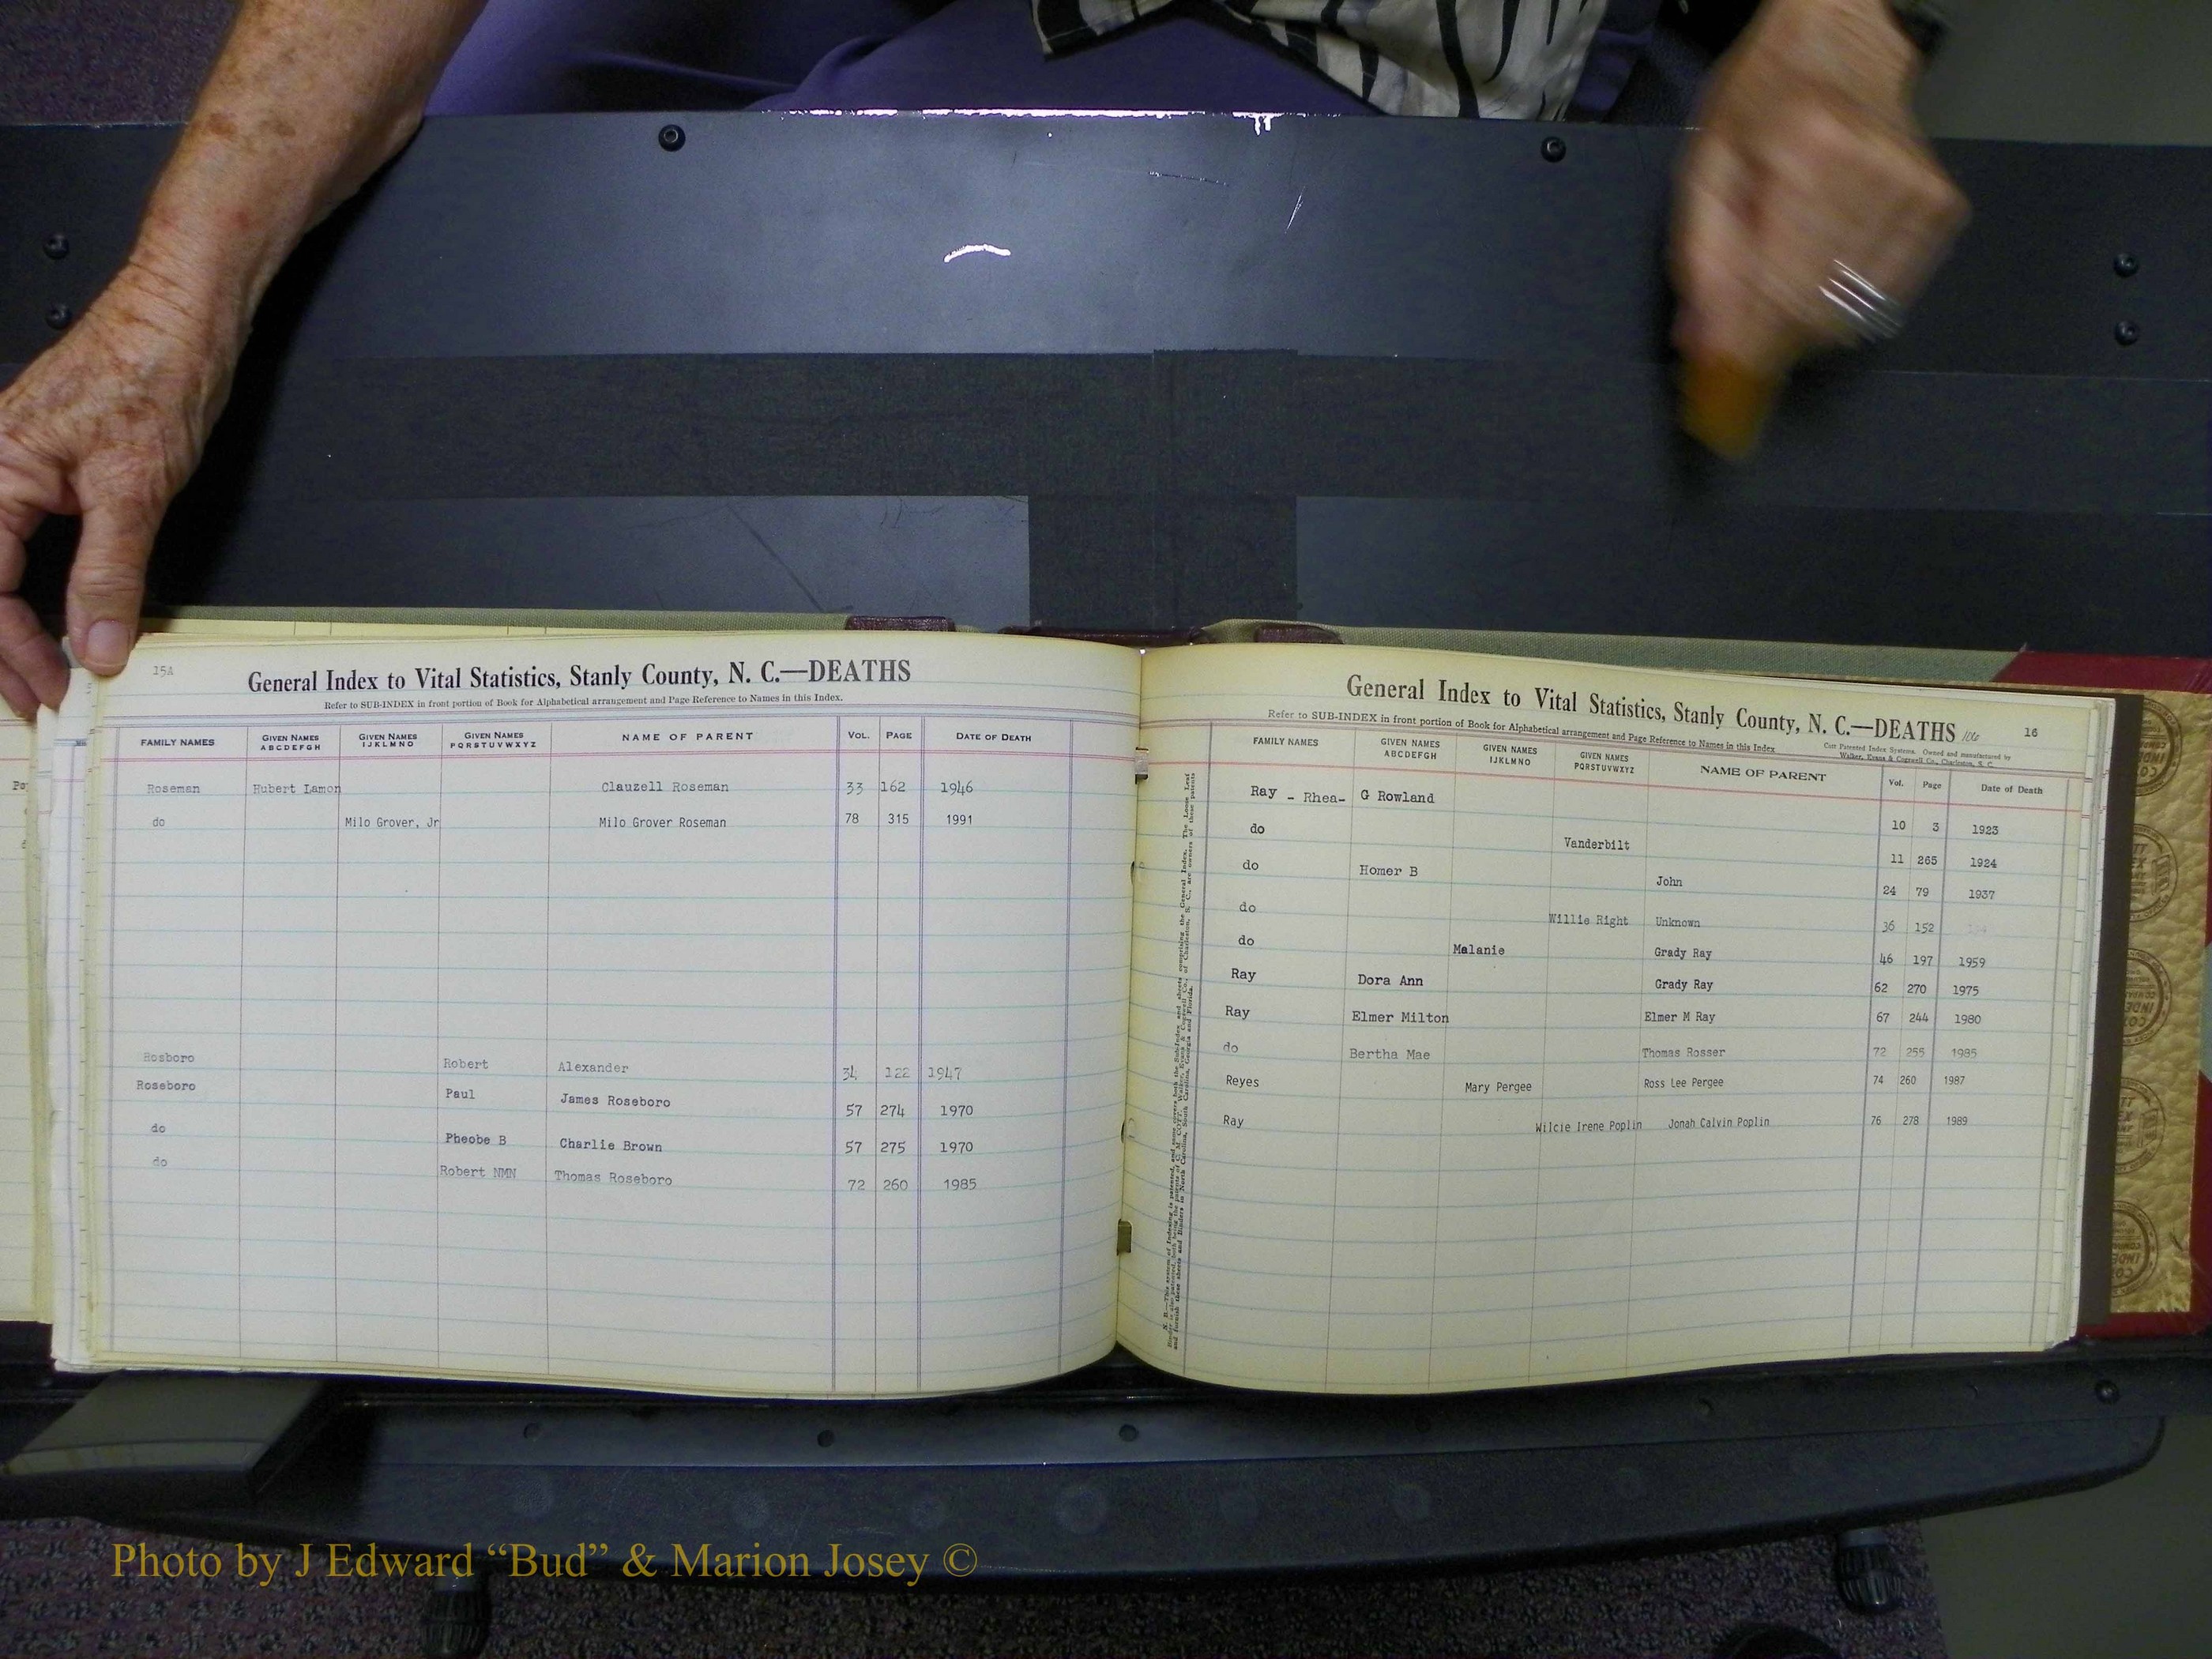 15A
General Index to Vital Statistics, Stanly County, N. C.—DEATHS
Refer to SUB-INDEX in front portion of Book for Alphabetical arrangement and Page Reference to Names in this Index.
FAMILY NAMES GIVEN NAMES ABCDEFGH GIVEN NAMES IJKLMNO GIVEN NAMES PQRSTUVWXYZ NAME OF PARENT VOL. PAGE DATE OF DEATH
Roseman Hubert Lamon Clauzell Roseman 33 162 1946
do Milo Grover, Jr Milo Grover Roseman 78 315 1991
Rosboro Robert Alexander 34 122 1947
Roseboro Paul James Roseboro 57 274 1970
do Pheobe B Charlie Brown 57 275 1970
do Robert NMN Thomas Roseboro 72 260 1985
General Index to Vital Statistics, Stanly County, N. C.—DEATHS 16
Refer to SUB-INDEX in front portion of Book for Alphabetical arrangement and Page Reference to Names in this Index
Cott Patented Index Systems. Owned and manufactured by
Walker, Evans & Cogswell Co., Charleston, S. C.
FAMILY NAMES GIVEN NAMES ABCDEFGH GIVEN NAMES IJKLMNO GIVEN NAMES PQRSTUVWXYZ NAME OF PARENT Vol. Page Date of Death
Ray - Rhea- G Rowland 10 3 1923
do Vanderbilt 11 265 1924
do Homer B John 24 79 1937
do Willie Right Unknown 36 152
do Malanie Grady Ray 46 197 1959
Ray Dora Ann Grady Ray 62 270 1975
Ray Elmer Milton Elmer M Ray 67 244 1980
do Bertha Mae Thomas Rosser 72 255 1985
Reyes Mary Pergee Ross Lee Pergee 74 260 1987
Ray Wilcie Irene Poplin Jonah Calvin Poplin 76 278 1989
Photo by J Edward “Bud” & Marion Josey ©